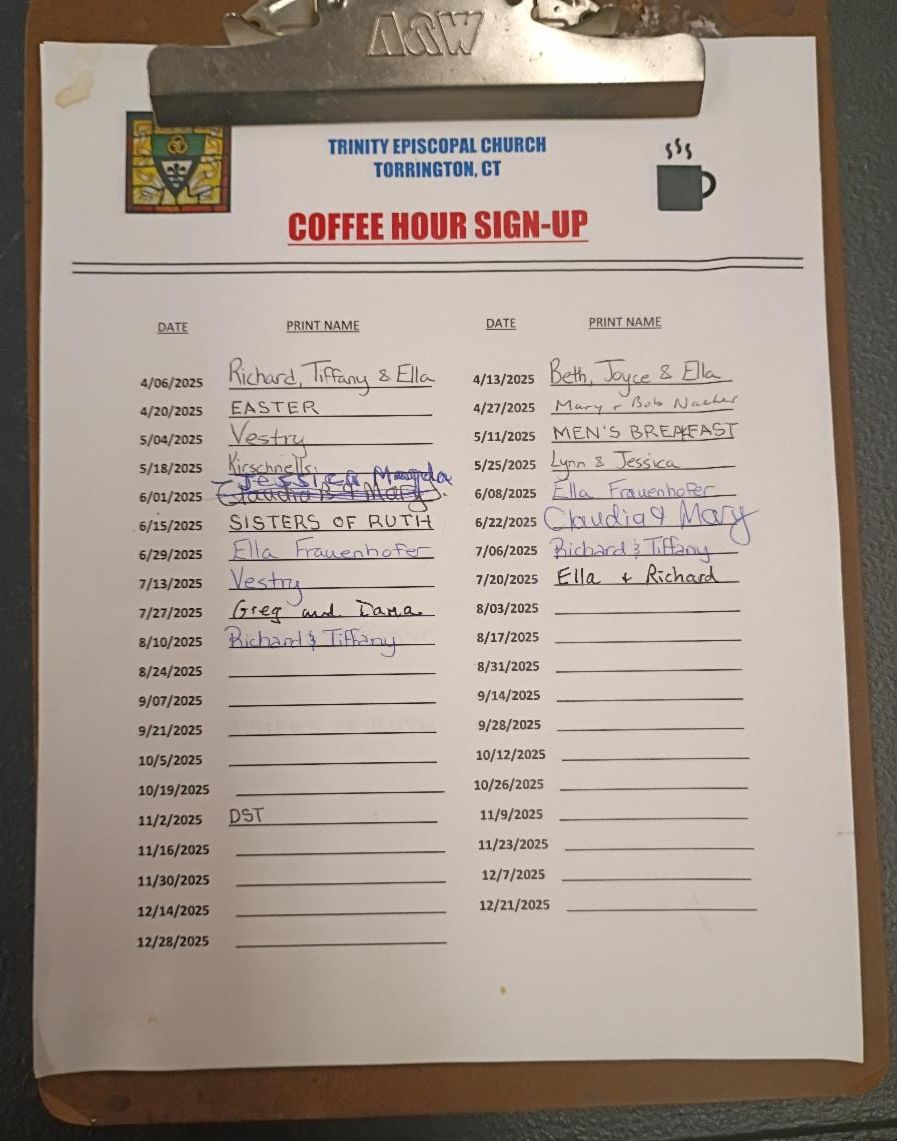 A&W
TRINITY EPISCOPAL CHURCH
TORRINGTON, CT
COFFEE HOUR SIGN-UP
DATE PRINT NAME DATE PRINT NAME
4/06/2025 Richard, Tiffany & Ella 4/13/2025 Beth, Joyce & Ella
4/20/2025 EASTER 4/27/2025 Mary & Bob Nacher
5/04/2025 Vestry 5/11/2025 MEN'S BREAKFAST
5/18/2025 Kirschnells 5/25/2025 Lynn & Jessica
Jessica Magda
6/01/2025 Claudia B & Mary 6/08/2025 Ella Frauenhofer
6/15/2025 SISTERS OF RUTH 6/22/2025 Claudia & Mary
6/29/2025 Ella Frauenhofer 7/06/2025 Richard & Tiffany
7/13/2025 Vestry 7/20/2025 Ella & Richard
7/27/2025 Greg and Dana 8/03/2025
8/10/2025 Richard & Tiffany 8/17/2025
8/24/2025 8/31/2025
9/07/2025 9/14/2025
9/21/2025 9/28/2025
10/5/2025 10/12/2025
10/19/2025 10/26/2025
11/2/2025 DST 11/9/2025
11/16/2025 11/23/2025
11/30/2025 12/7/2025
12/14/2025 12/21/2025
12/28/2025